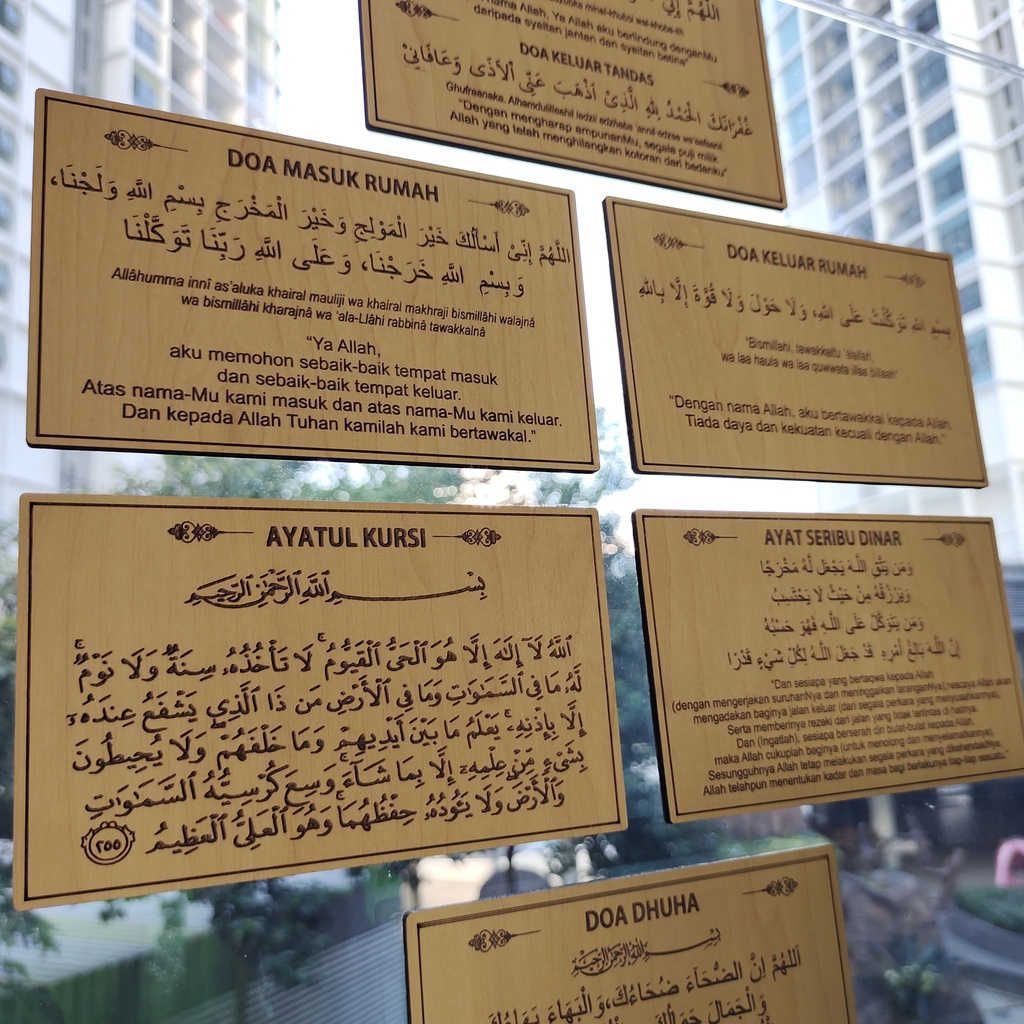 اللَّهُمَّ إِنِّي
nama Allah, Ya Allah aku berlindung denganMu
daripada syaitan jantan dan syaitan betina"
DOA KELUAR TANDAS
غُفْرَانَكَ الْحَمْدُ لِلَّهِ الَّذِيْ أَذْهَبَ عَنِّي الْأَذَى وَعَافَانِيْ
Ghufraanaka. Alhamdulillaahil ladzii adzhaba 'annil-adzaa wa'aafaanii
"Dengan mengharap ampunanMu, segala puji milik
Allah yang telah menghilangkan kotoran dari badanku"
DOA MASUK RUMAH
اللَّهُمَّ إِنِّيْ أَسْأَلُكَ خَيْرَ الْمَوْلِجِ وَخَيْرَ الْمَخْرَجِ بِسْمِ اللَّهِ وَلَجْنَا،
وَبِسْمِ اللَّهِ خَرَجْنَا، وَعَلَى اللَّهِ رَبِّنَا تَوَكَّلْنَا
Allâhumma innî as'aluka khairal mauliji wa khairal makhraji bismillâhi walajnâ
wa bismillâhi kharajnâ wa 'ala-Llâhi rabbinâ tawakkalnâ
"Ya Allah,
aku memohon sebaik-baik tempat masuk
dan sebaik-baik tempat keluar.
Atas nama-Mu kami masuk dan atas nama-Mu kami keluar.
Dan kepada Allah Tuhan kamilah kami bertawakal."
DOA KELUAR RUMAH
بِسْمِ اللهِ تَوَكَّلْتُ عَلَى اللهِ، وَلَا حَوْلَ وَلَا قُوَّةَ إِلَّا بِاللهِ
"Bismillahi, tawakkaltu 'alallah,
wa laa haula wa laa quwwata illaa billaah"
"Dengan nama Allah, aku bertawakkal kepada Allah.
Tiada daya dan kekuatan kecuali dengan Allah."
AYATUL KURSI
بِسْمِ اللَّهِ الرَّحْمَٰنِ الرَّحِيمِ
ٱللَّهُ لَآ إِلَٰهَ إِلَّا هُوَ ٱلْحَىُّ ٱلْقَيُّومُ ۚ لَا تَأْخُذُهُۥ سِنَةٌ وَلَا نَوْمٌ ۚ
لَّهُۥ مَا فِى ٱلسَّمَٰوَٰتِ وَمَا فِى ٱلْأَرْضِ مَن ذَا ٱلَّذِى يَشْفَعُ عِندَهُۥٓ
إِلَّا بِإِذْنِهِۦ ۚ يَعْلَمُ مَا بَيْنَ أَيْدِيهِمْ وَمَا خَلْفَهُمْ ۖ وَلَا يُحِيطُونَ
بِشَىْءٍ مِّنْ عِلْمِهِۦٓ إِلَّا بِمَا شَآءَ ۚ وَسِعَ كُرْسِيُّهُ ٱلسَّمَٰوَٰتِ
وَٱلْأَرْضَ ۖ وَلَا يَـُٔودُهُۥ حِفْظُهُمَا ۚ وَهُوَ ٱلْعَلِىُّ ٱلْعَظِيمُ ٢٥٥
AYAT SERIBU DINAR
وَمَن يَتَّقِ اللَّـهَ يَجْعَل لَّهُ مَخْرَجًا
وَيَرْزُقْهُ مِنْ حَيْثُ لَا يَحْتَسِبُ
وَمَن يَتَوَكَّلْ عَلَى اللَّـهِ فَهُوَ حَسْبُهُ
إِنَّ اللَّـهَ بَالِغُ أَمْرِهِ قَدْ جَعَلَ اللَّـهُ لِكُلِّ شَيْءٍ قَدْرًا
"Dan sesiapa yang bertaqwa kepada Allah
(dengan mengerjakan suruhanNya dan meninggalkan laranganNya), nescaya Allah akan
mengadakan baginya jalan keluar (dari segala perkara yang menyusahkannya),
Serta memberinya rezeki dari jalan yang tidak terlintas di hatinya.
Dan (Ingatlah), sesiapa berserah diri bulat-bulat kepada Allah,
maka Allah cukuplah baginya (untuk menolong dan menyelamatkannya).
Sesungguhnya Allah tetap melakukan segala perkara yang dikehendakiNya.
Allah telahpun menentukan kadar dan masa bagi berlakunya tiap-tiap sesuatu."
DOA DHUHA
بِسْمِ اللَّهِ الرَّحْمَٰنِ الرَّحِيمِ
اَللَّهُمَّ اِنَّ الضُّحَآءَ ضُحَاءُكَ، وَالْبَهَاءَ بَهَاءُكَ
وَالْجَمَالَ جَمَالُكَ